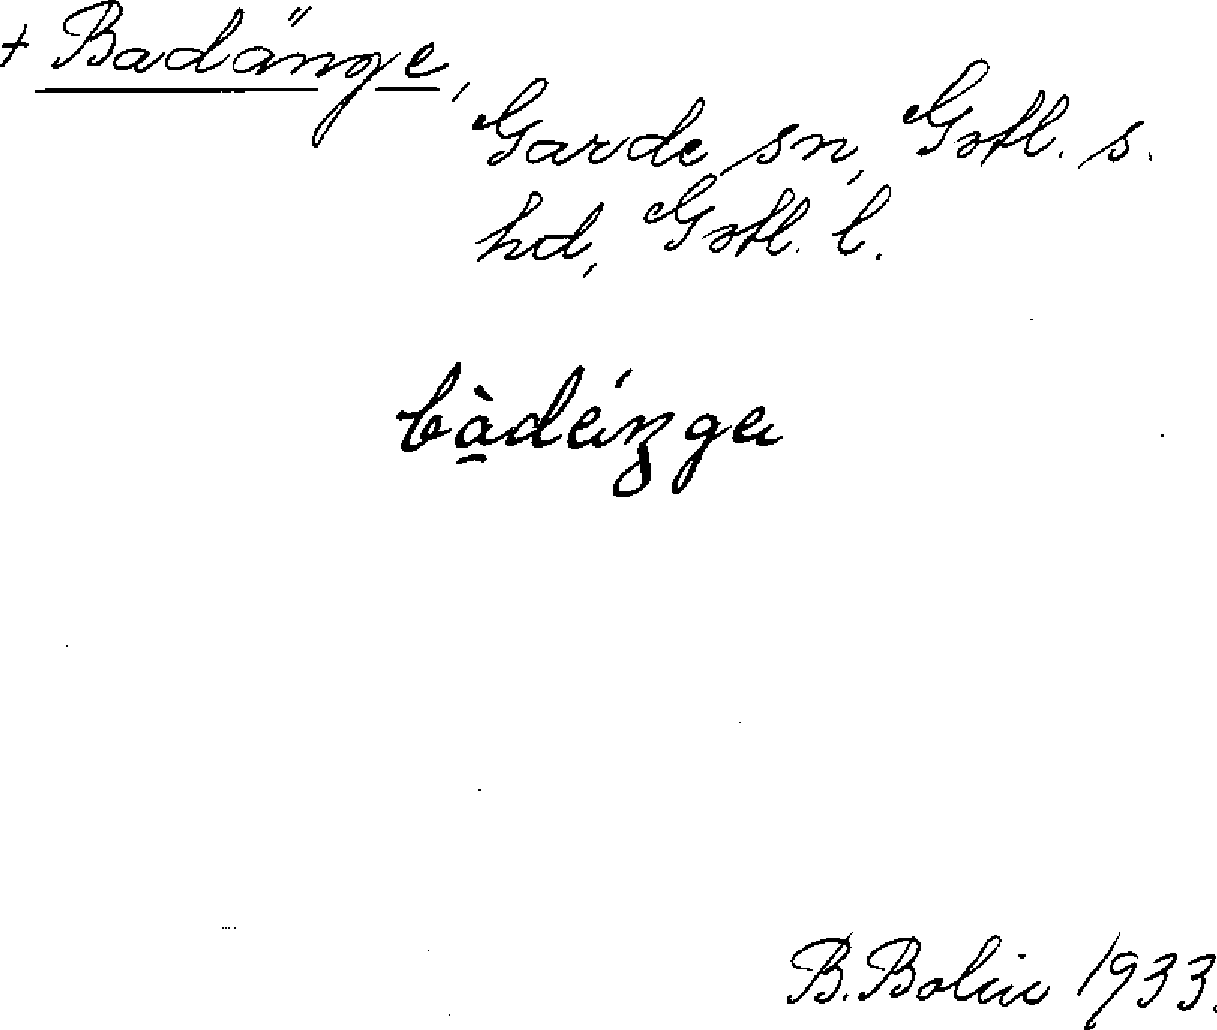 + Badänge,
Garde sn, Gotl. s.
hd, Gotl. l.
B. Bolin 1933.